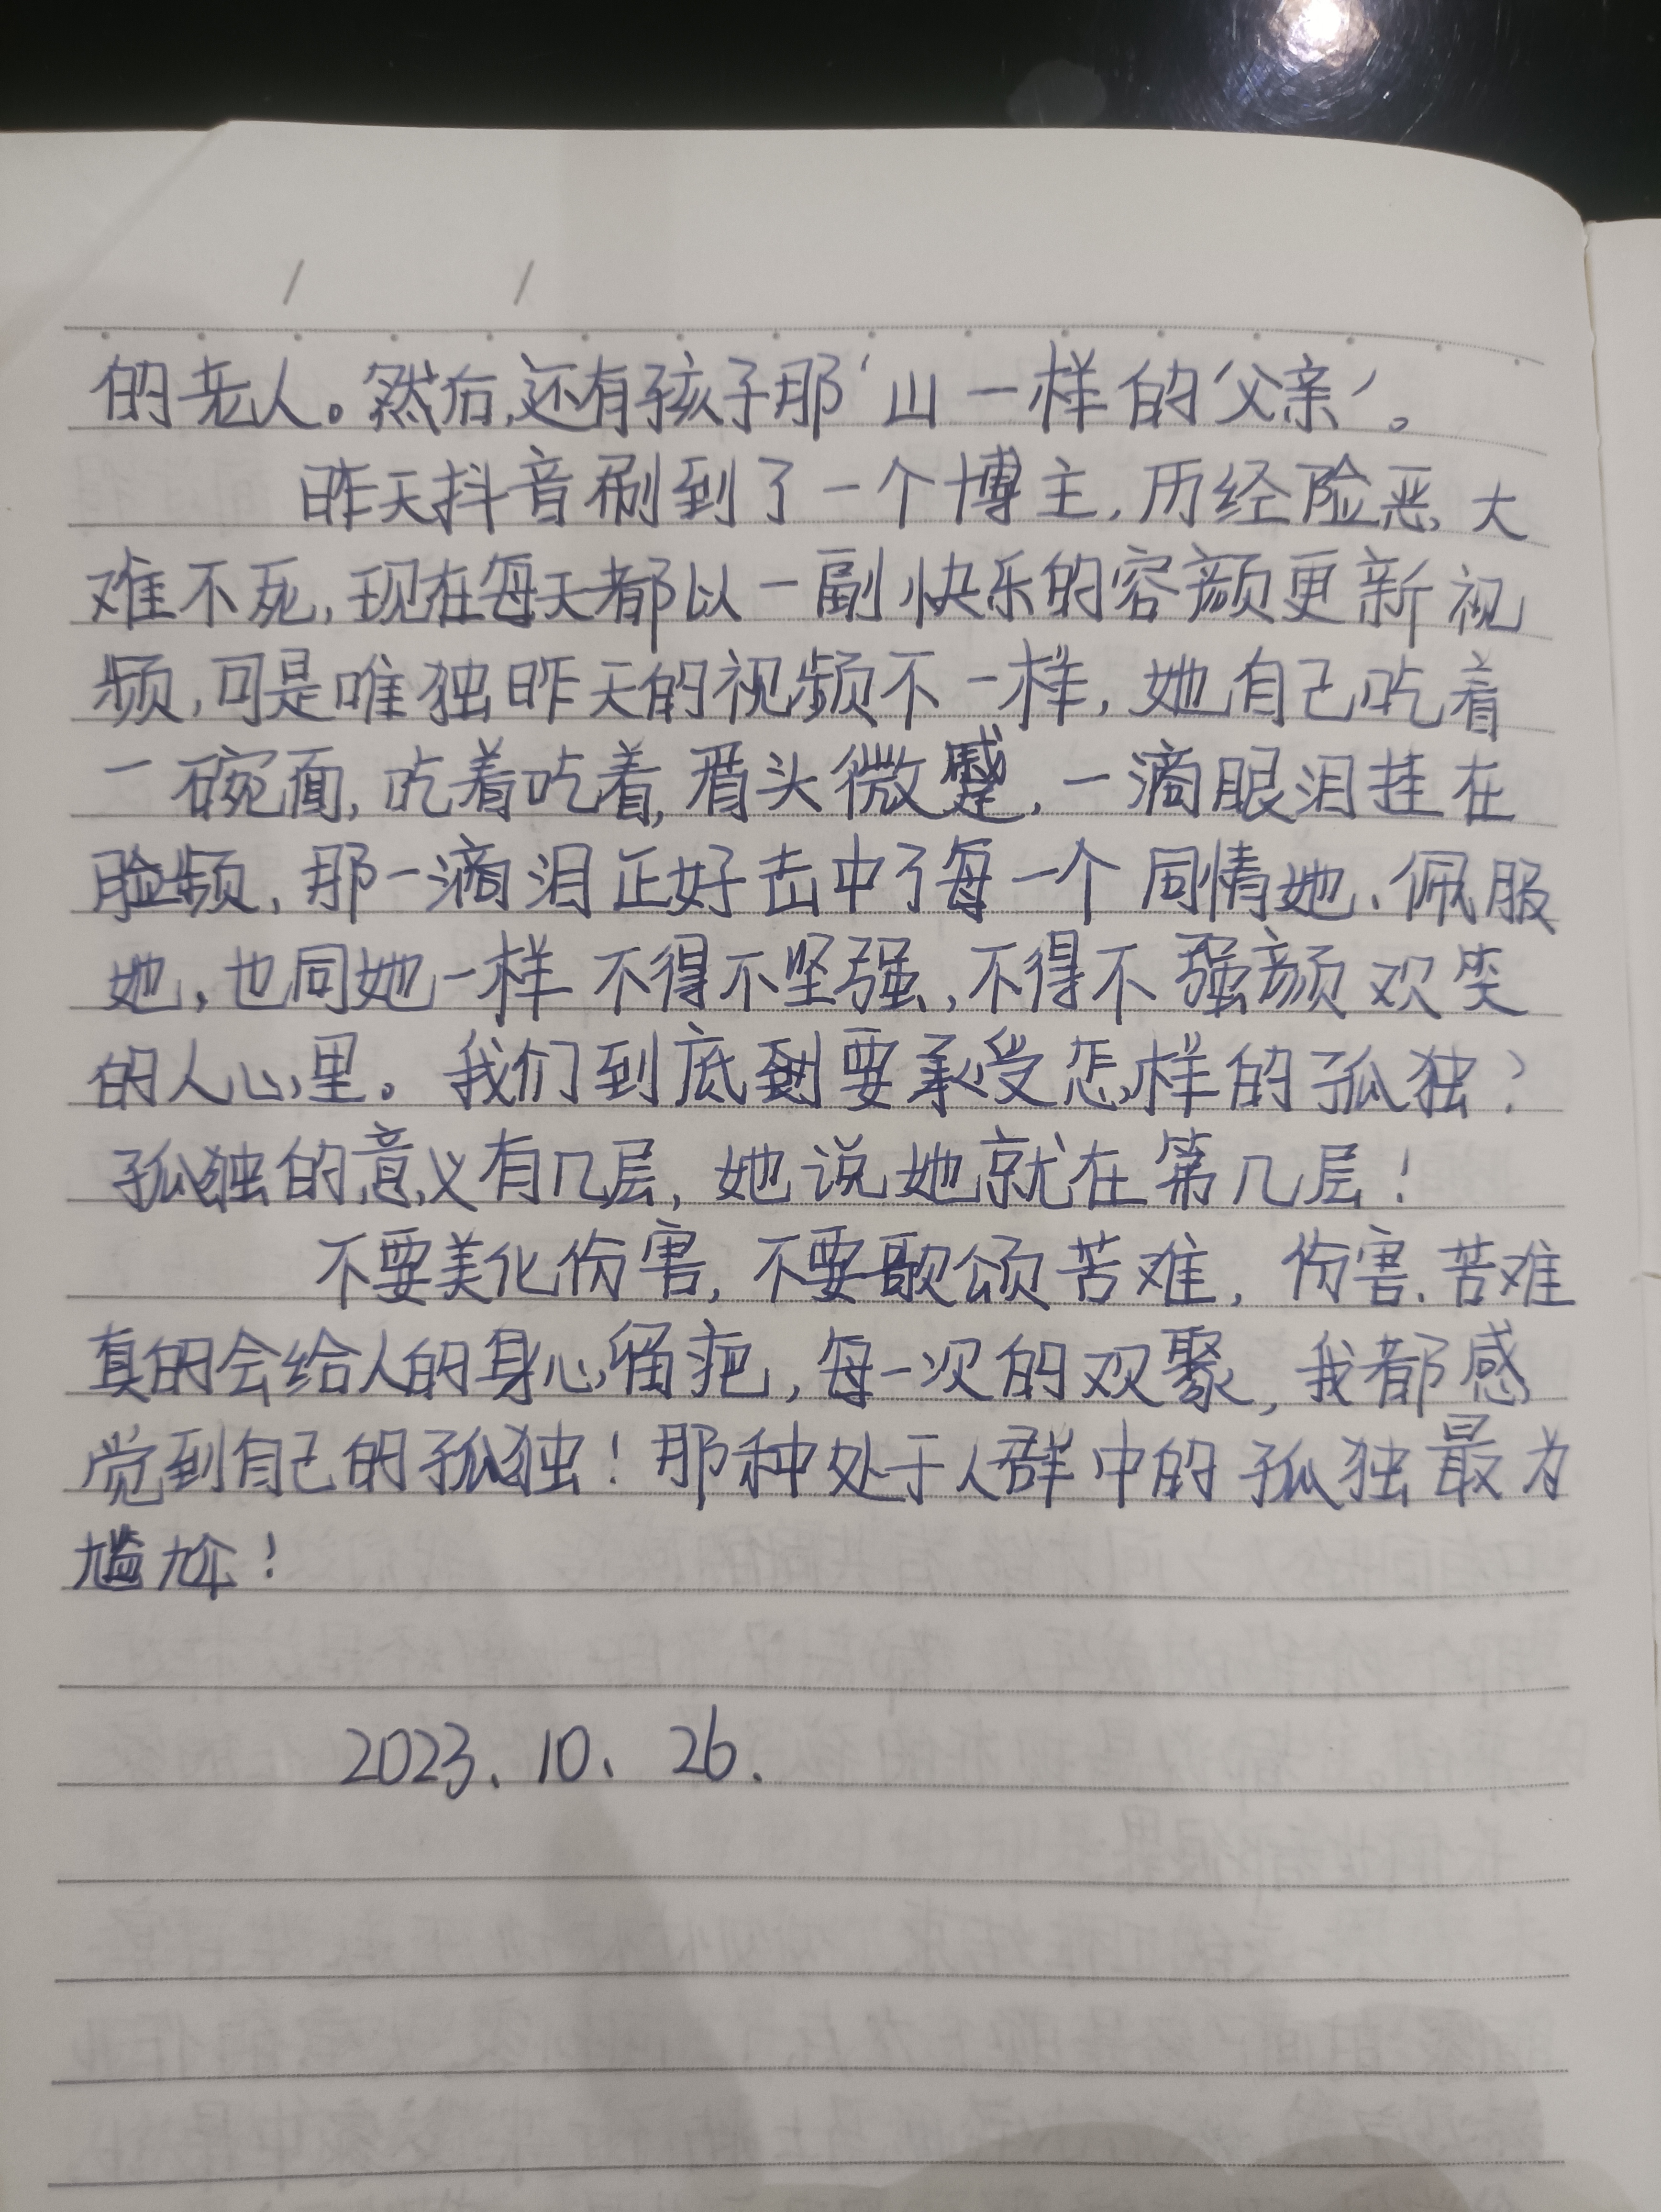 的老人。然后,还有孩子那‘山一样的父亲’。
昨天抖音刷到了一个博主,历经险恶,大
难不死,现在每天都以一副快乐的容颜更新视
频,可是唯独昨天的视频不一样,她自己吃着
一碗面,吃着吃着,眉头微蹙,一滴眼泪挂在
脸频,那一滴泪正好击中了每一个同情她、佩服
她,也同她一样不得不坚强,不得不强颜欢笑
的人心里。我们到底到要承受怎样的孤独?
孤独的意义有几层,她说她就在第几层!
不要美化伤害,不要歌颂苦难,伤害、苦难
真的会给人的身心留疤,每一次的欢聚,我都感
觉到自己的孤独!那种处于人群中的孤独最为
尴尬!
2023、10、26.